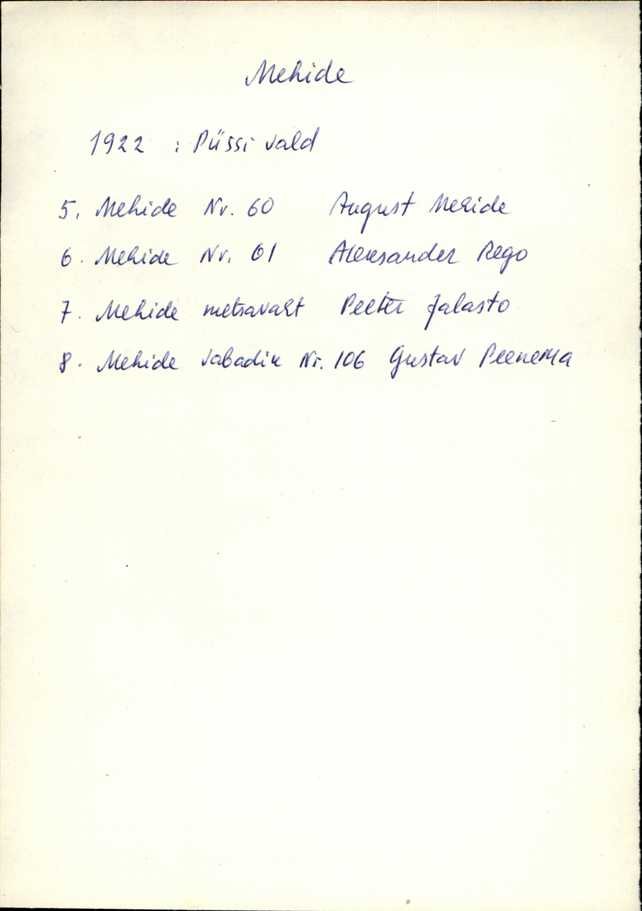 Mehide
1922 : Püssi vald
5. Mehide Nr. 60 August Mehide
6. Mehide Nr. 61 Aleksander Rego
7. Mehide metsavaht Peeter Jalasto
8. Mehide vabadik Nr. 106 Gustav Peenema